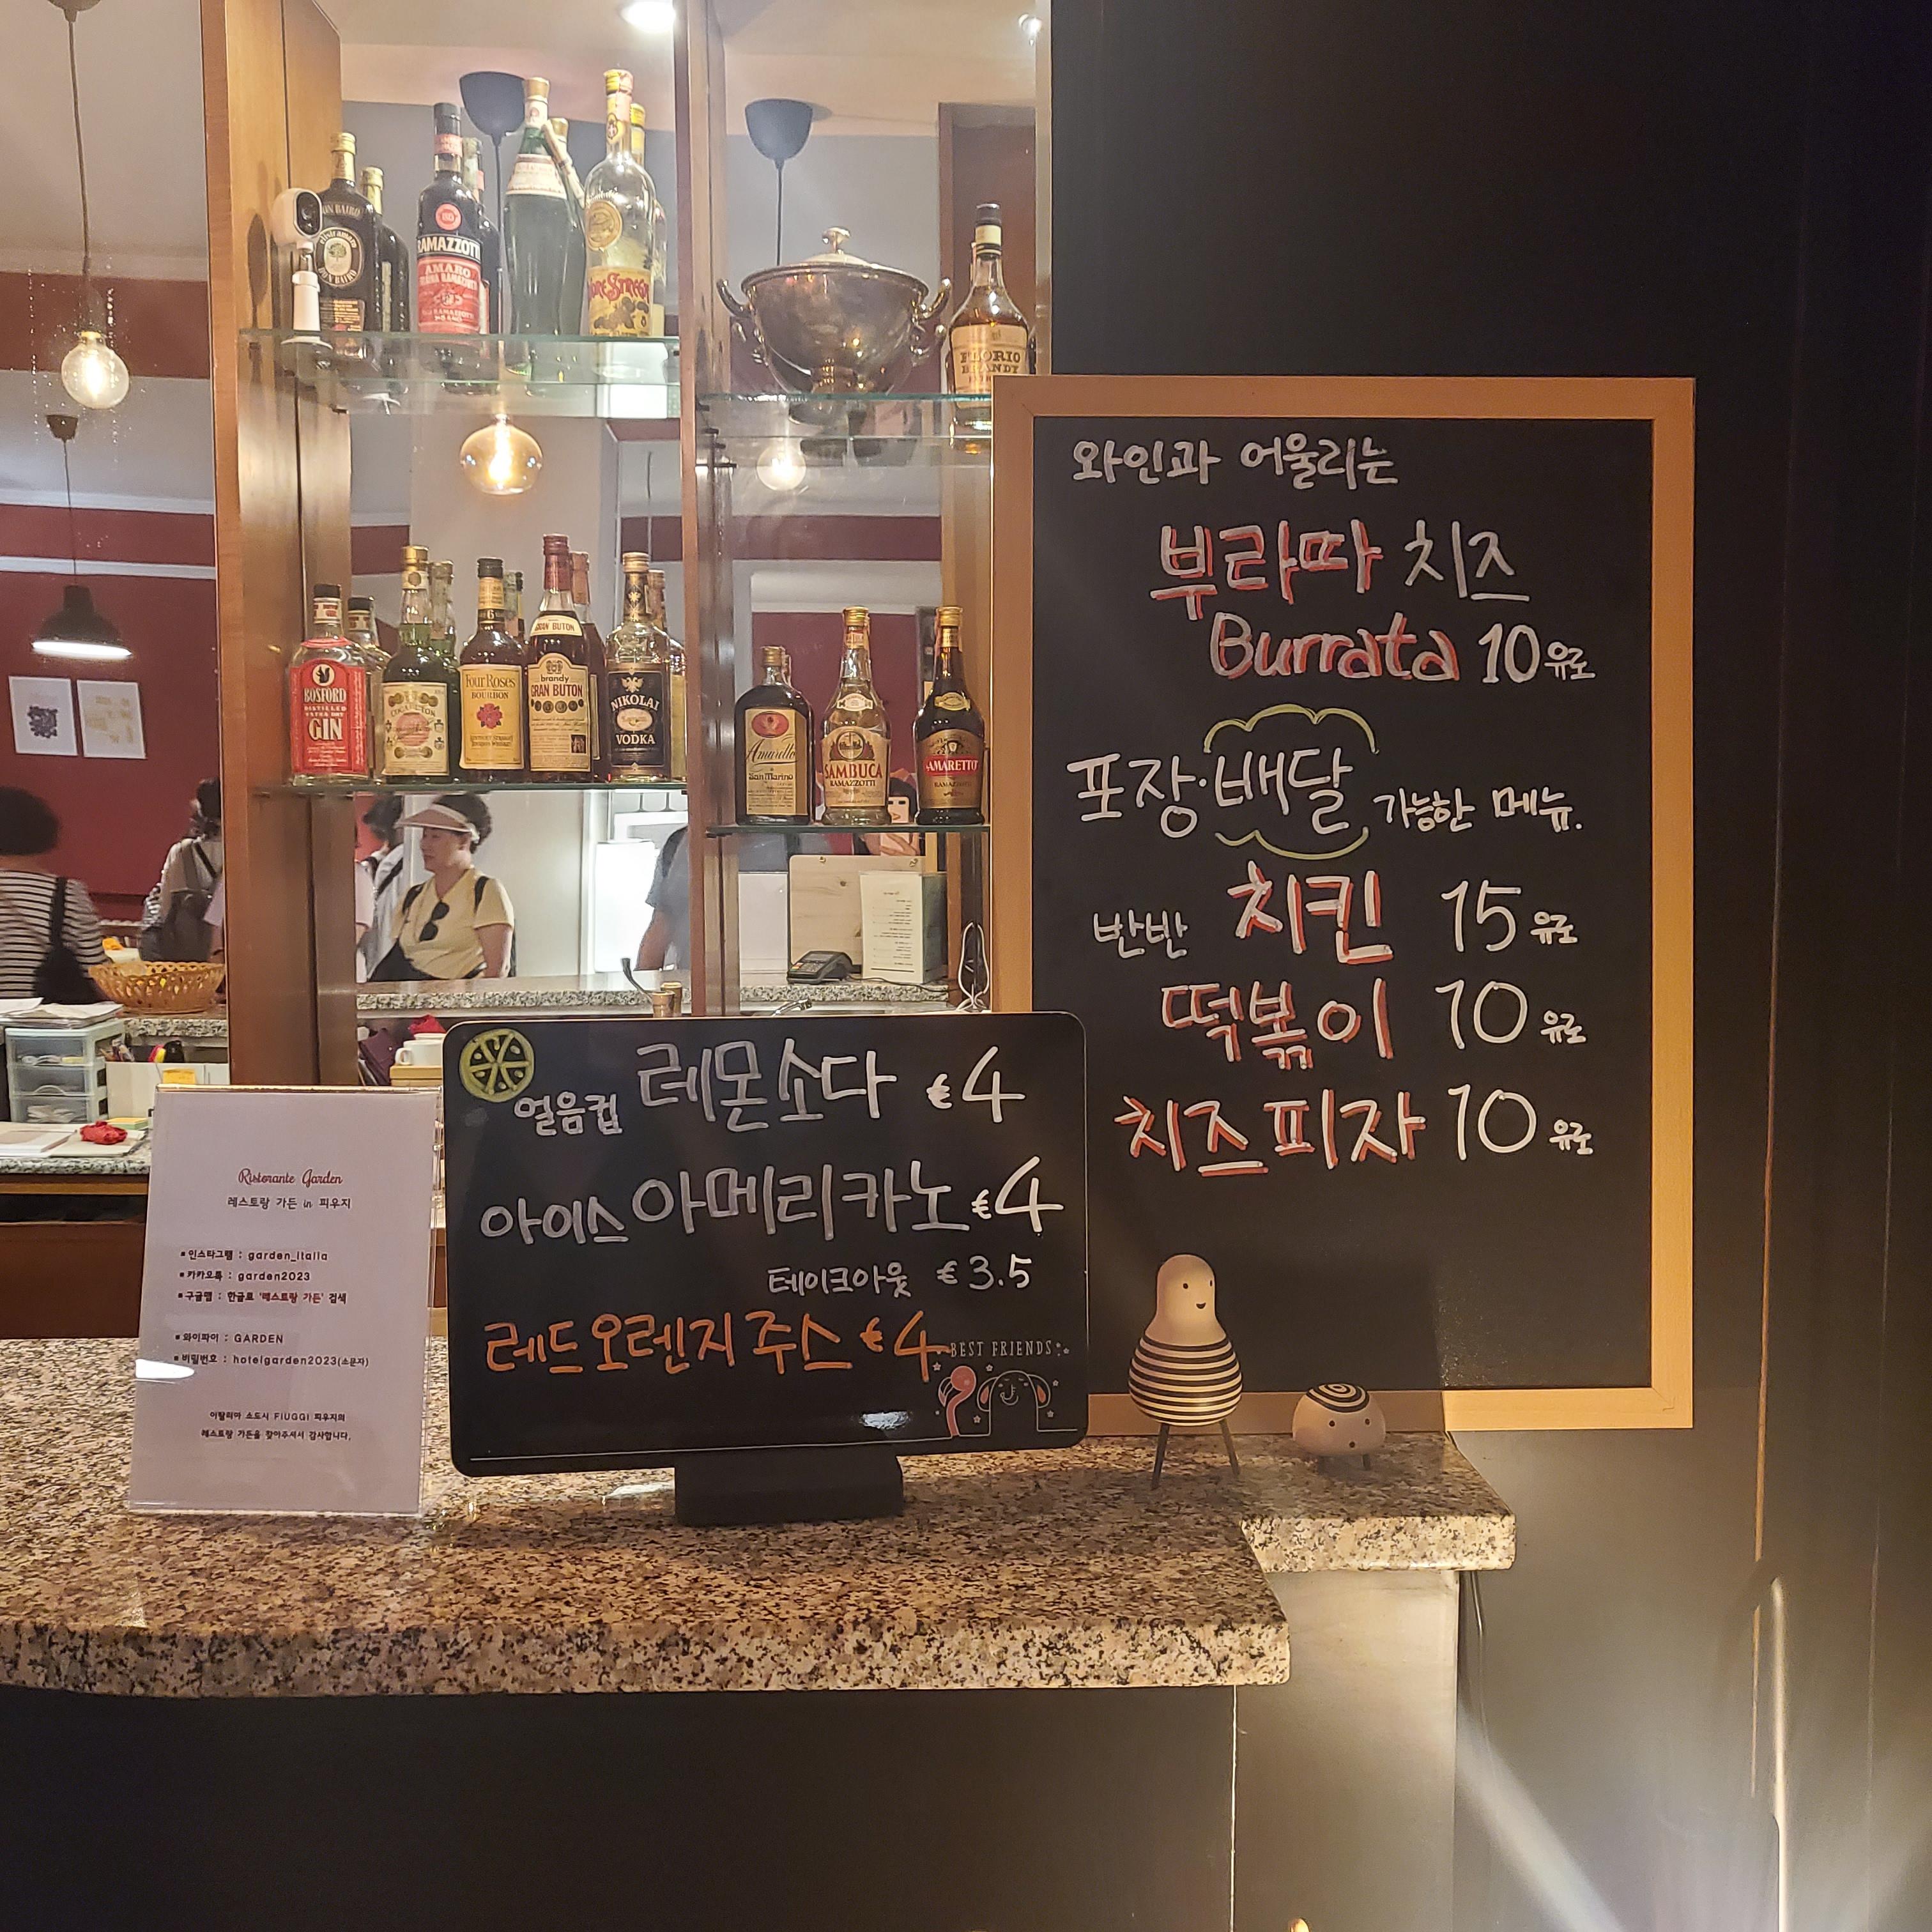 RAMAZZOTTI
AMARO
FLORIO
BRANDY
BOSFORD
DISTILLED
EXTRA DRY
GIN
Four Roses
BOURBON
GRAN BUTON
brandy
GRAN BUTON
NIKOLAI
VODKA
Amaretto
San Marino
SAMBUCA
RAMAZZOTTI
AMARETTO
RAMAZZOTTI
와인과 어울리는
부라따 치즈
Burrata 10유로
포장·배달 가능한 메뉴.
반반 치킨 15유로
떡볶이 10유로
치즈피자 10유로
얼음컵 레몬소다 €4
아이스 아메리카노 €4
테이크아웃 €3.5
레드오렌지주스 €4
BEST FRIENDS
Ristorante Garden
레스토랑 가든 in 피우지
▪인스타그램 : garden_italia
▪카카오톡 : garden2023
▪구글맵 : 한글로 '레스토랑 가든' 검색
▪와이파이 : GARDEN
▪비밀번호 : hotelgarden2023(소문자)
이탈리아 소도시 FIUGGI 피우지의
레스토랑 가든을 찾아주셔서 감사합니다.